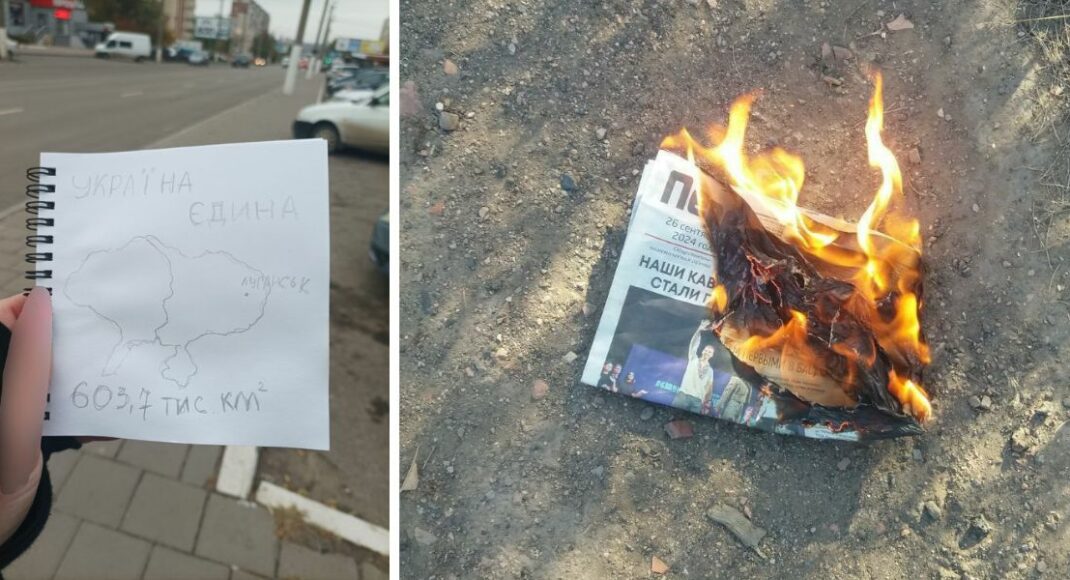 УКРАЇНА
ЄДИНА
ЛУГАНСЬК
603,7 ТИС. КМ²
26 сентя
2024 го
НАШИ КАВ
СТАЛИ